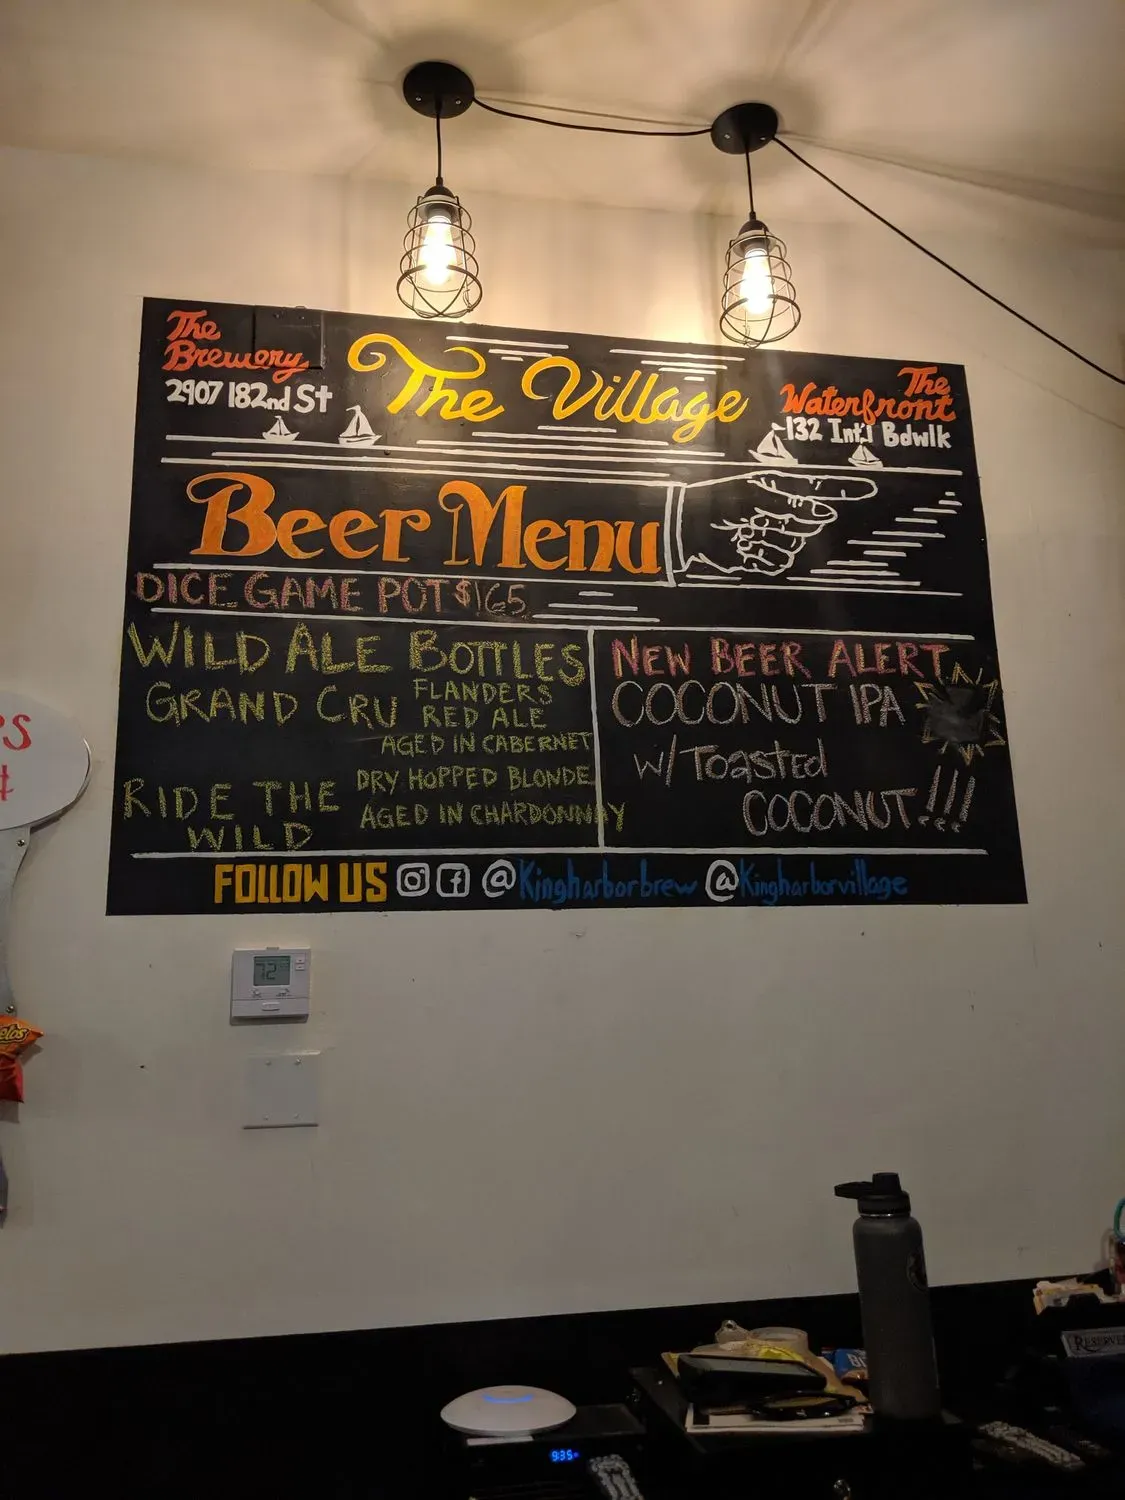 The
Brewery
2907 182nd St
The Village
The
Waterfront
132 Int'l Bdwlk
Beer Menu
DICE GAME POT $165
WILD ALE BOTTLES
GRAND CRU
FLANDERS
RED ALE
AGED IN CABERNET
RIDE THE
WILD
DRY HOPPED BLONDE
AGED IN CHARDONNAY
NEW BEER ALERT
COCONUT IPA
w/ Toasted
COCONUT!!!
FOLLOW US @Kingharborbrew @Kingharborvillage
72
9:35